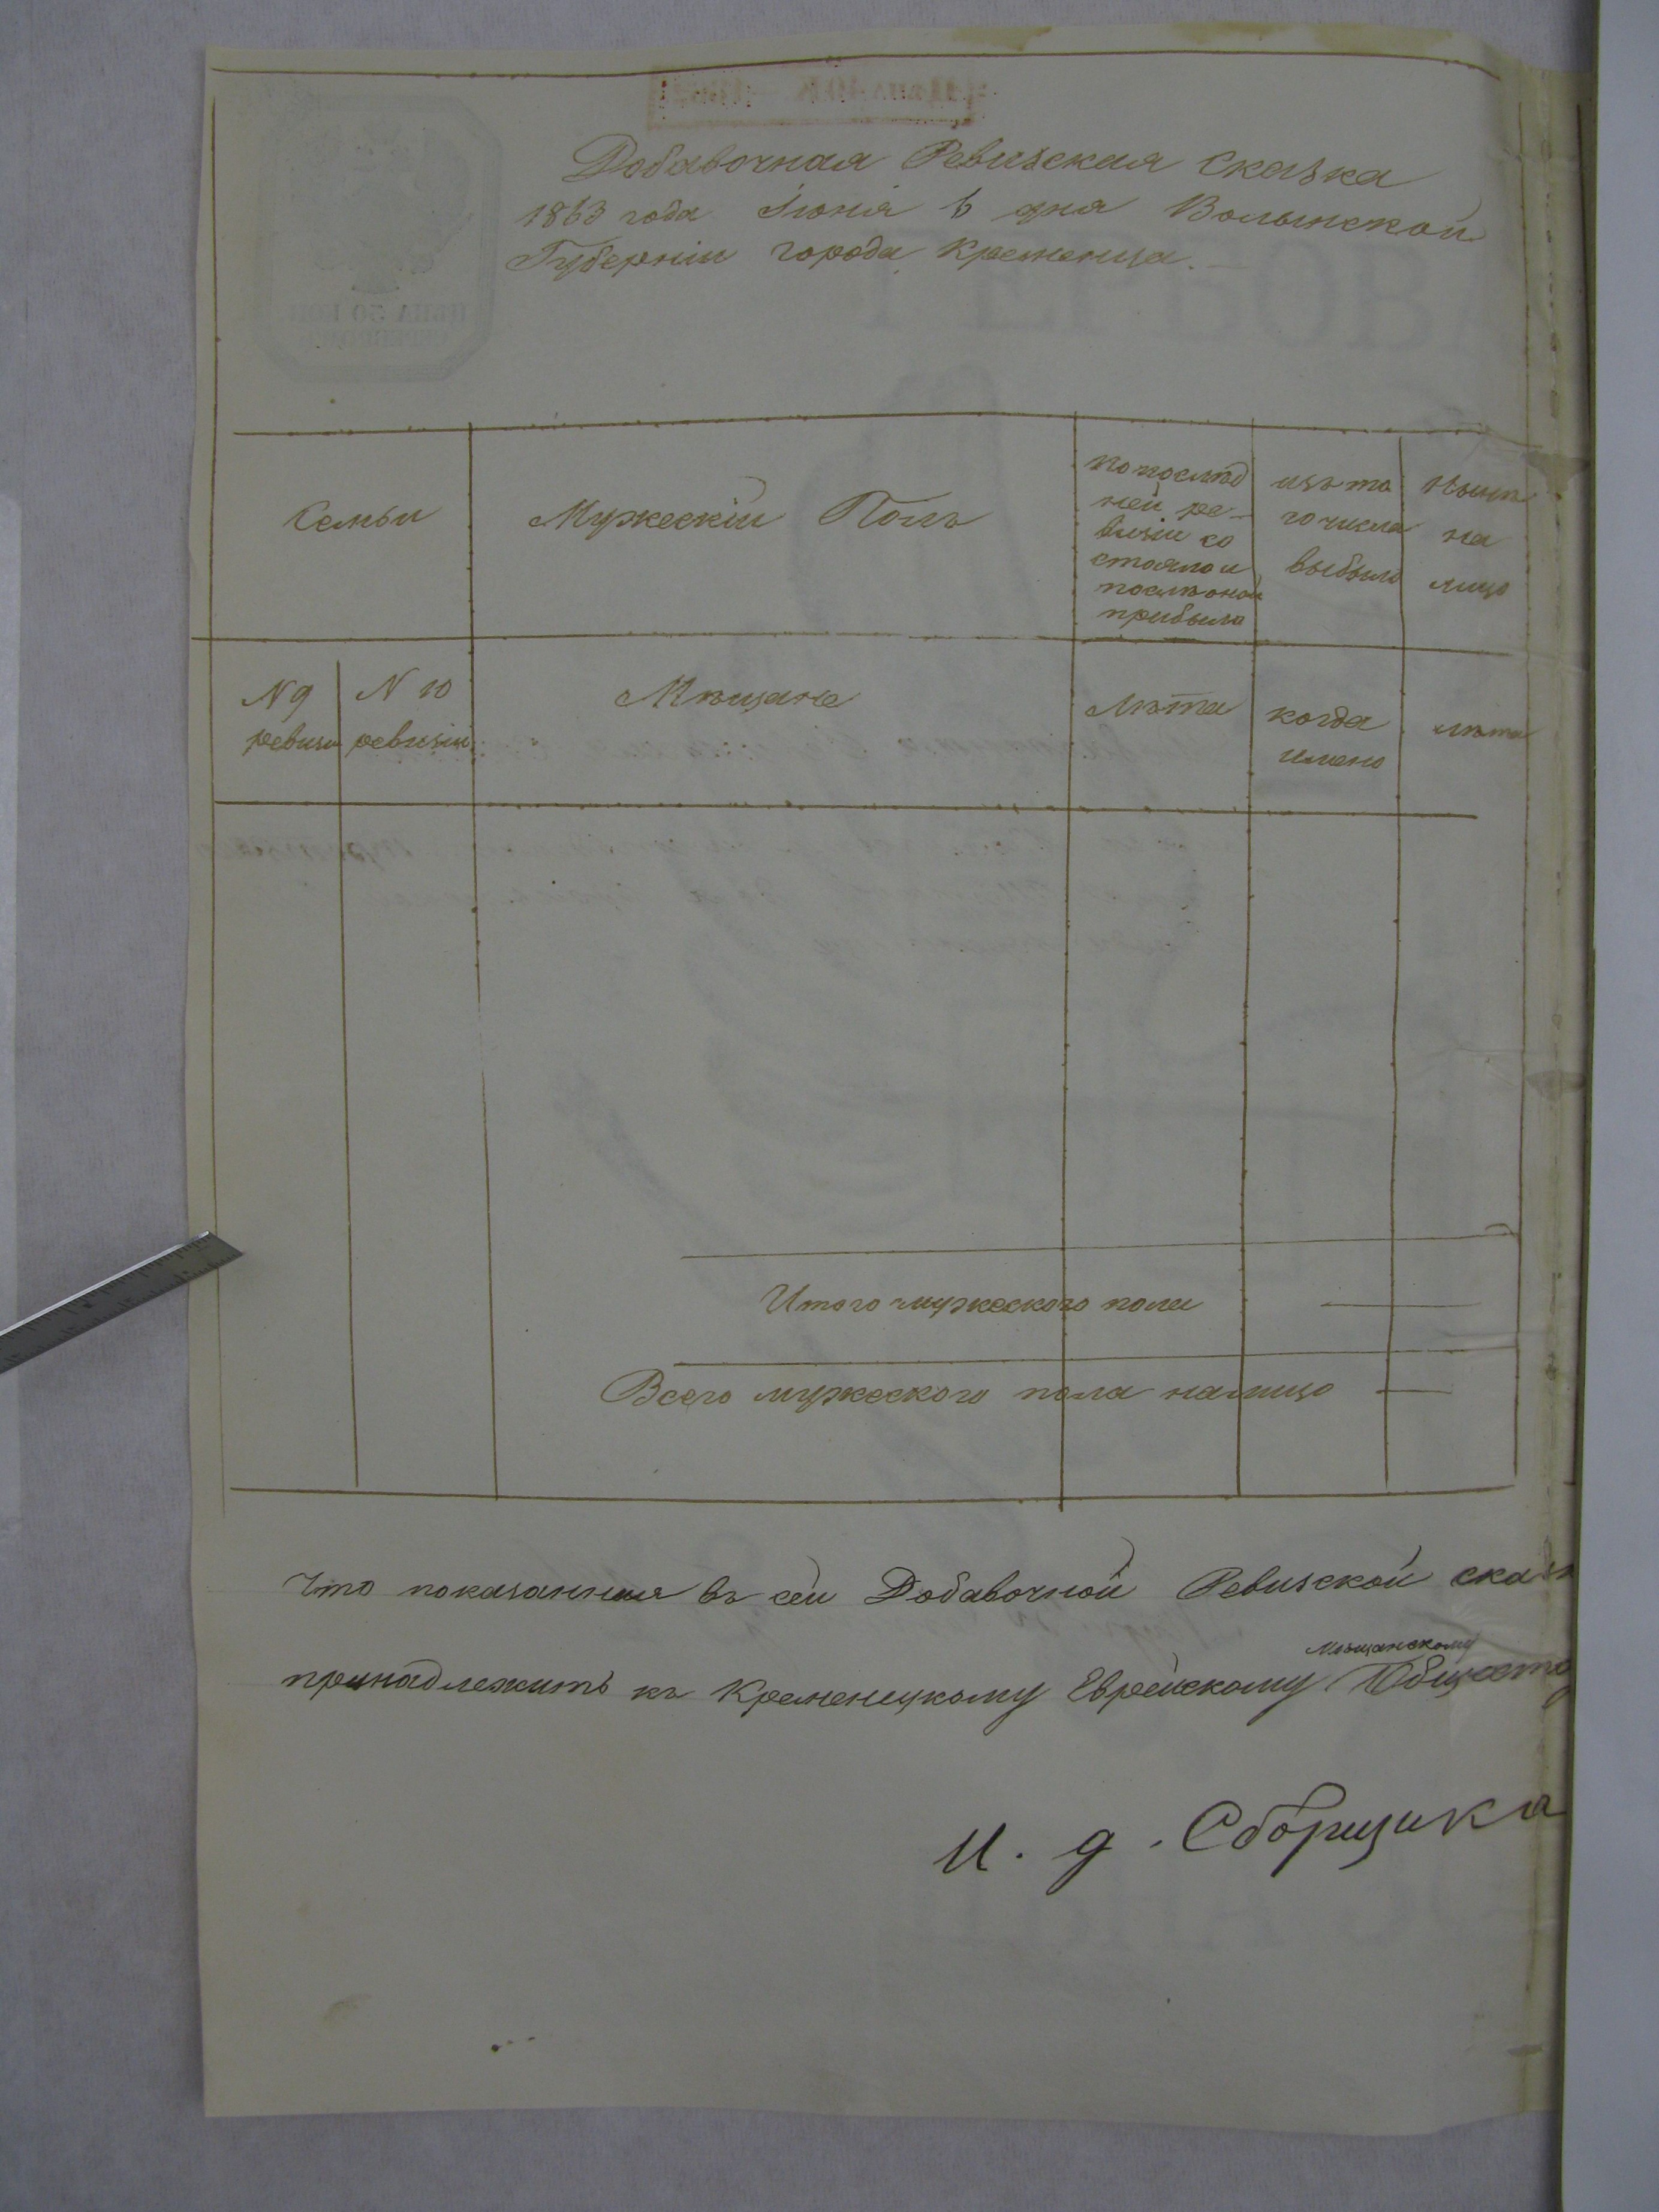 Добавочная Ревизская Сказка
1863 года Іюня 6 дня Волынской
Губерніи города Кременца.
Семьи
Мужескій Полъ
По послѣд
ней ре-
визіи со
стояло и
послѣ оной
прибыло
изъ то
го числа
выбыло
Нынѣ
на
лицо
N 9
ревизіи
N 10
ревизіи
Мѣщане
Лѣта
когда
имено
лѣта
Итого мужескаго пола
Всего мужескаго пола налицо
Что показанныя въ сей Добавочной Ревизской сказ
мѣщанскому
принадлежитъ къ Кременецкому Еврейскому Обществу
И. д. Сборщика